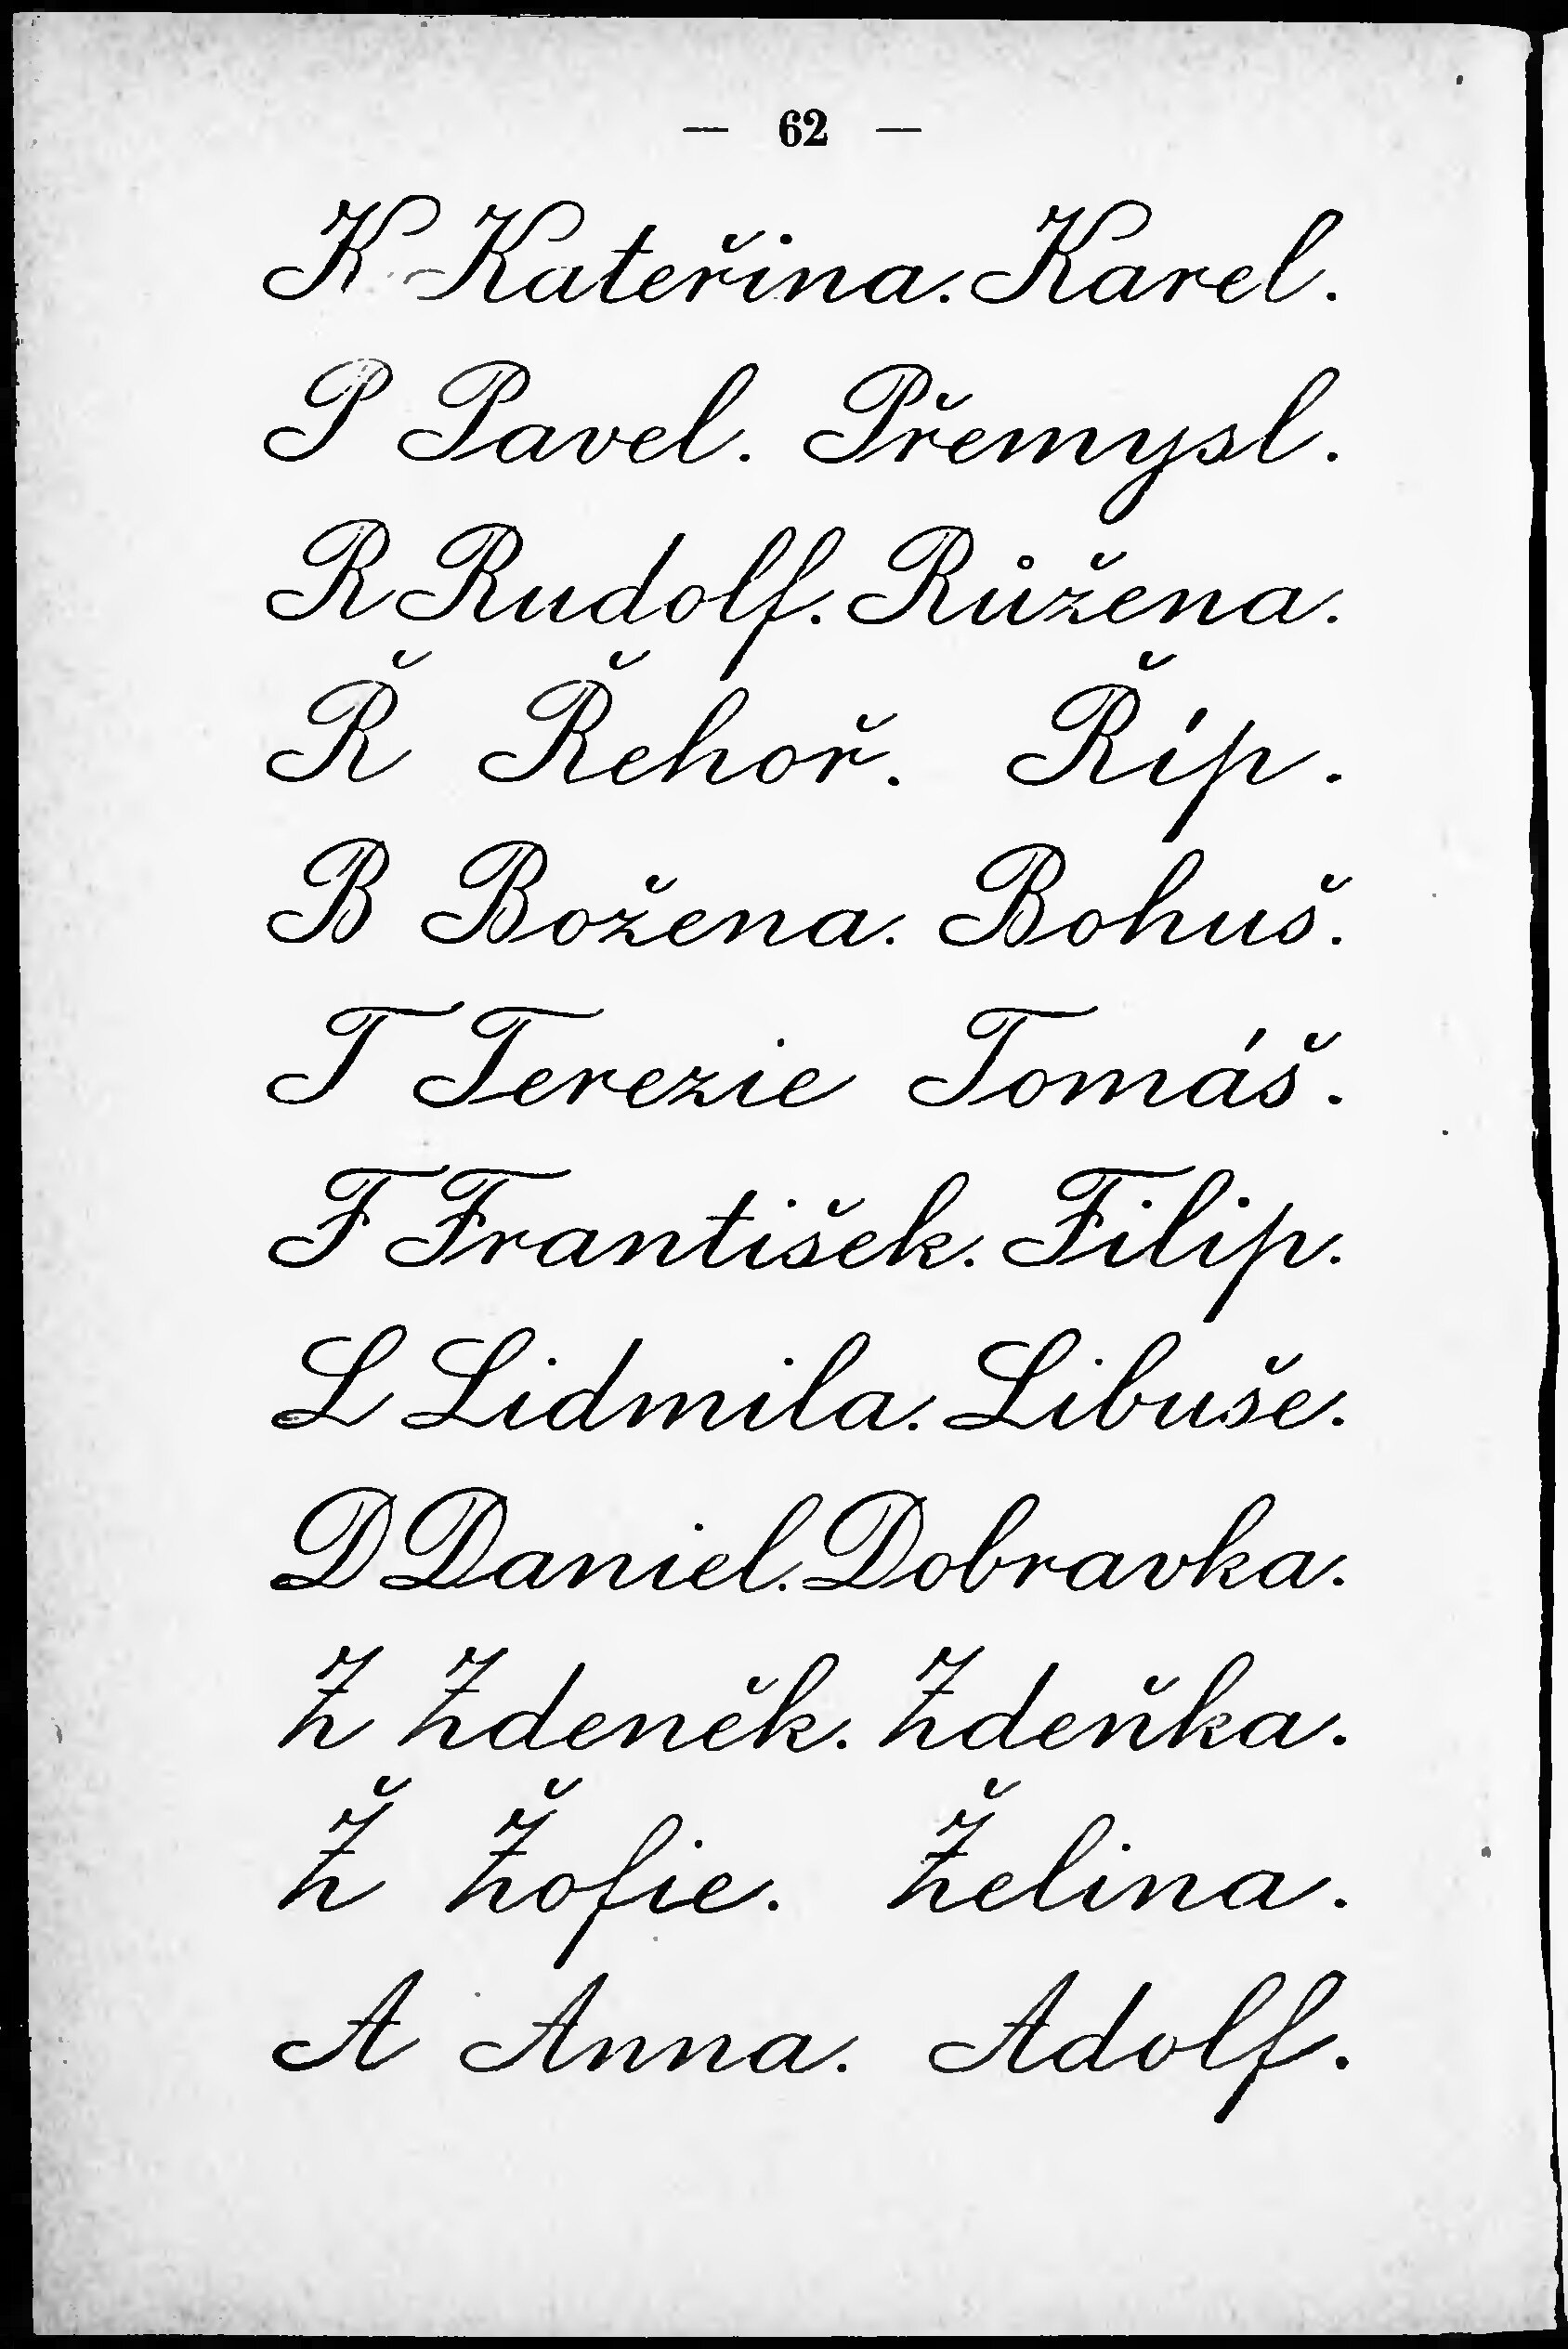 — 62 —
K Kateřina. Karel.
P Pavel. Přemysl.
R Rudolf. Růžena.
Ř Řehoř. Říp.
B Božena. Bohuš.
T Terezie Tomáš.
F František. Filip.
L Lidmila. Libuše.
D Daniel. Dobravka.
Z Zdeněk. Zdeňka.
Ž Žofie. Želina.
A Anna. Adolf.